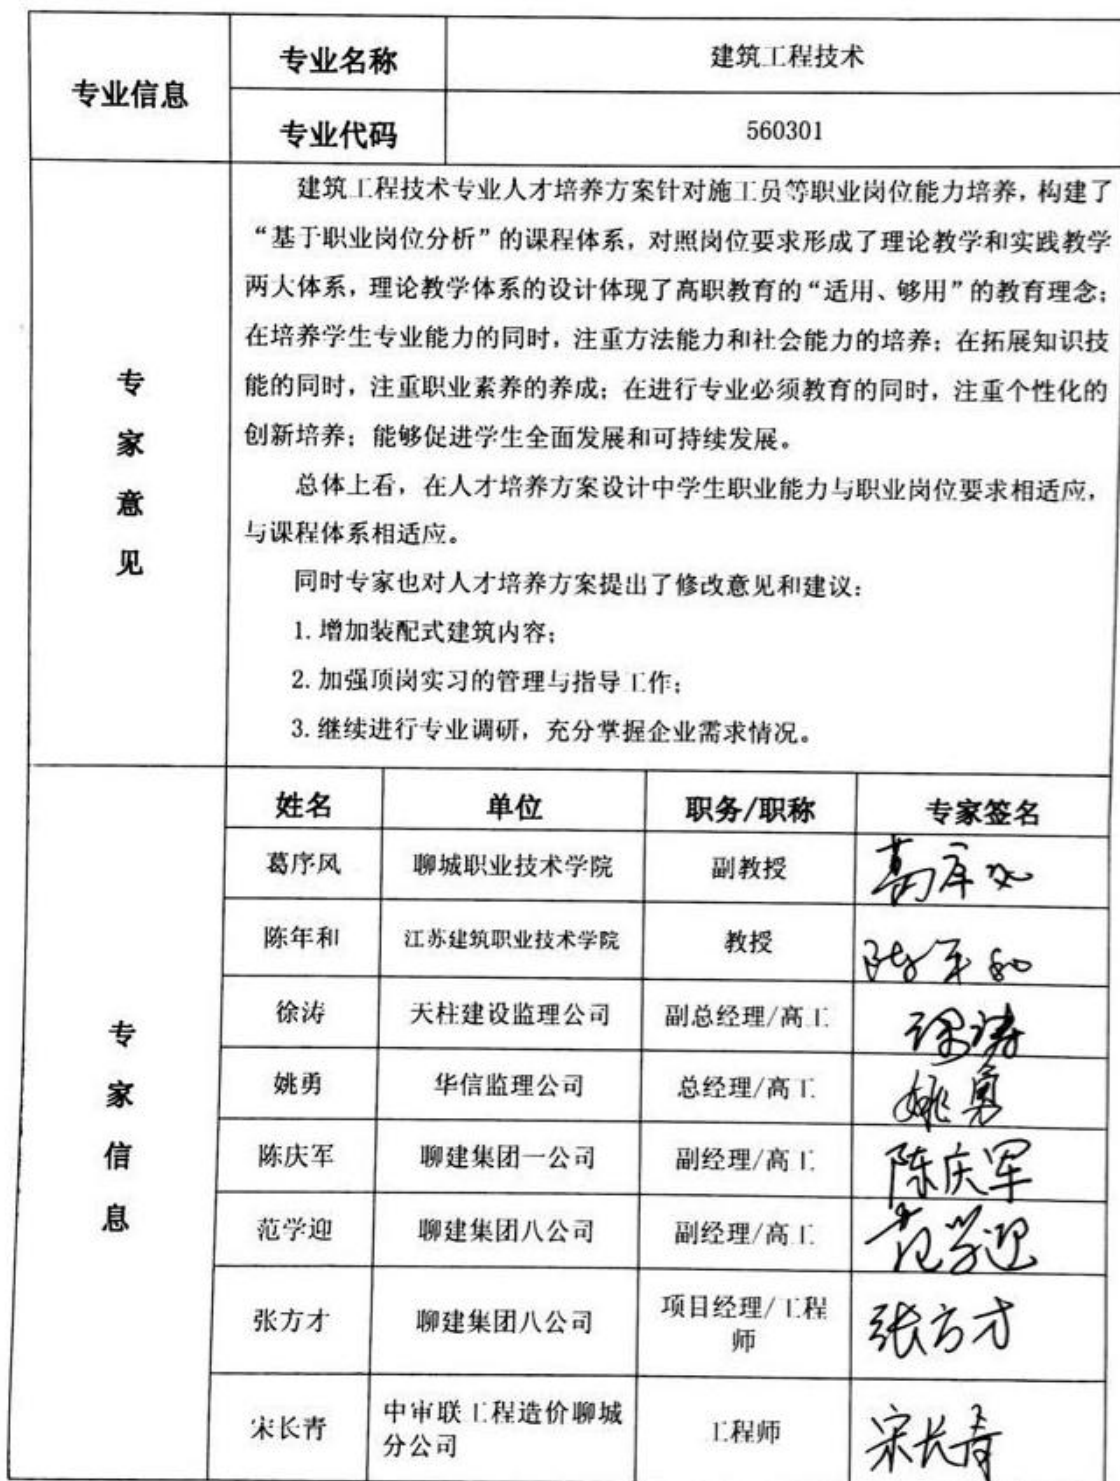 专业信息
专业名称
建筑工程技术
专业代码
560301
专家意见
建筑工程技术专业人才培养方案针对施工员等职业岗位能力培养，构建了
“基于职业岗位分析”的课程体系，对照岗位要求形成了理论教学和实践教学
两大体系，理论教学体系的设计体现了高职教育的“适用、够用”的教育理念；
在培养学生专业能力的同时，注重方法能力和社会能力的培养；在拓展知识技
能的同时，注重职业素养的养成；在进行专业必须教育的同时，注重个性化的
创新培养；能够促进学生全面发展和可持续发展。
总体上看，在人才培养方案设计中学生职业能力与职业岗位要求相适应，
与课程体系相适应。
同时专家也对人才培养方案提出了修改意见和建议：
1.增加装配式建筑内容；
2.加强顶岗实习的管理与指导工作；
3.继续进行专业调研，充分掌握企业需求情况。
专家信息
姓名 单位 职务/职称 专家签名
葛序风 聊城职业技术学院 副教授 葛序风
陈年和 江苏建筑职业技术学院 教授 陈年和
徐涛 天柱建设监理公司 副总经理/高工 徐涛
姚勇 华信监理公司 总经理/高工 姚勇
陈庆军 聊建集团一公司 副经理/高工 陈庆军
范学迎 聊建集团八公司 副经理/高工 范学迎
张方才 聊建集团八公司 项目经理/工程
师 张方才
宋长青 中审联工程造价聊城
分公司 工程师 宋长青